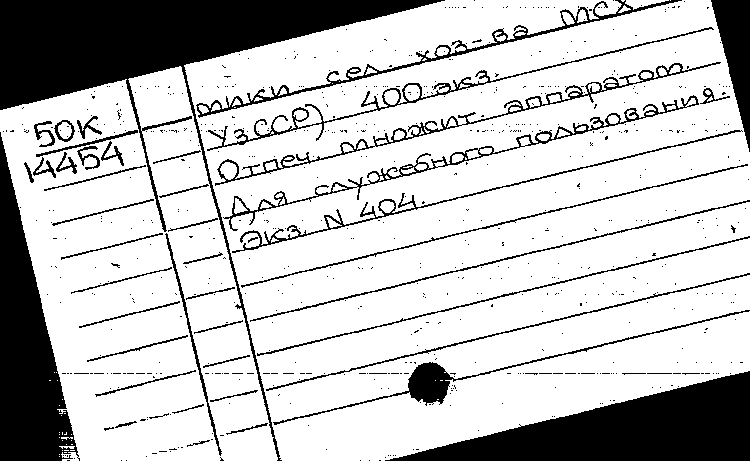 мики сел. хоз-ва МСХ
50К
УзССР). 400 экз.
14454
Отпеч. множит. аппаратом.
Для служебного пользования.
Экз. N 404.